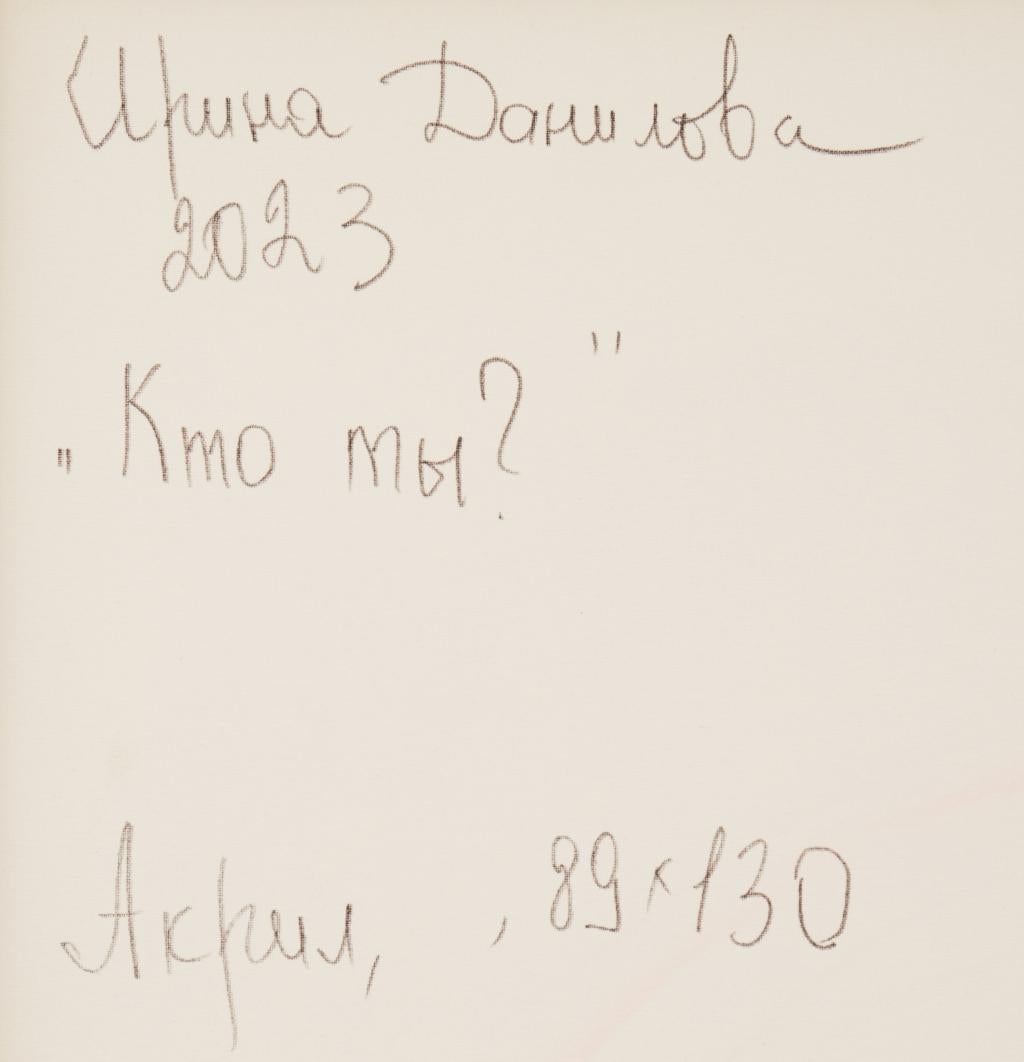 Ирина Данилова
2023
„Кто ты?"
Акрил, , 89×130